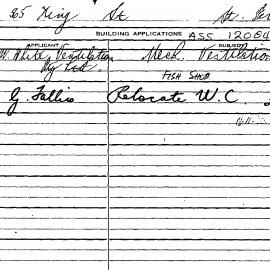 365 King St St.
BUILDING APPLICATIONS ASS 12084
APPLICANT SUBJECT
W. White Ventilation Mech. Ventilation
Pty Ltd.
FISH SHOP
G. Fallis Relocate W.C.